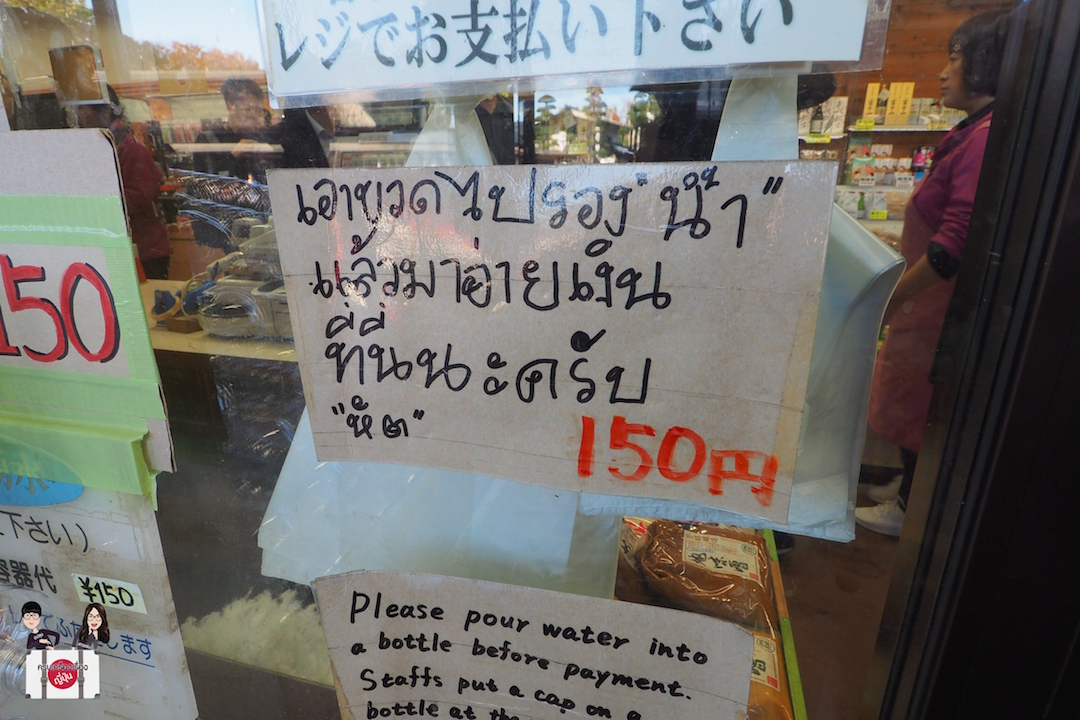 レジでお支払い下さい
เอาขวดไปรอง "น้ำ"
แล้วมาจ่ายเงิน
ที่นี่นะครับ
"หัต"
150円
150
下さい)
容器代 ¥150
します
Please pour water into
a bottle before payment.
Staffs put a cap on a
bottle at the
ญี่ปุ่น